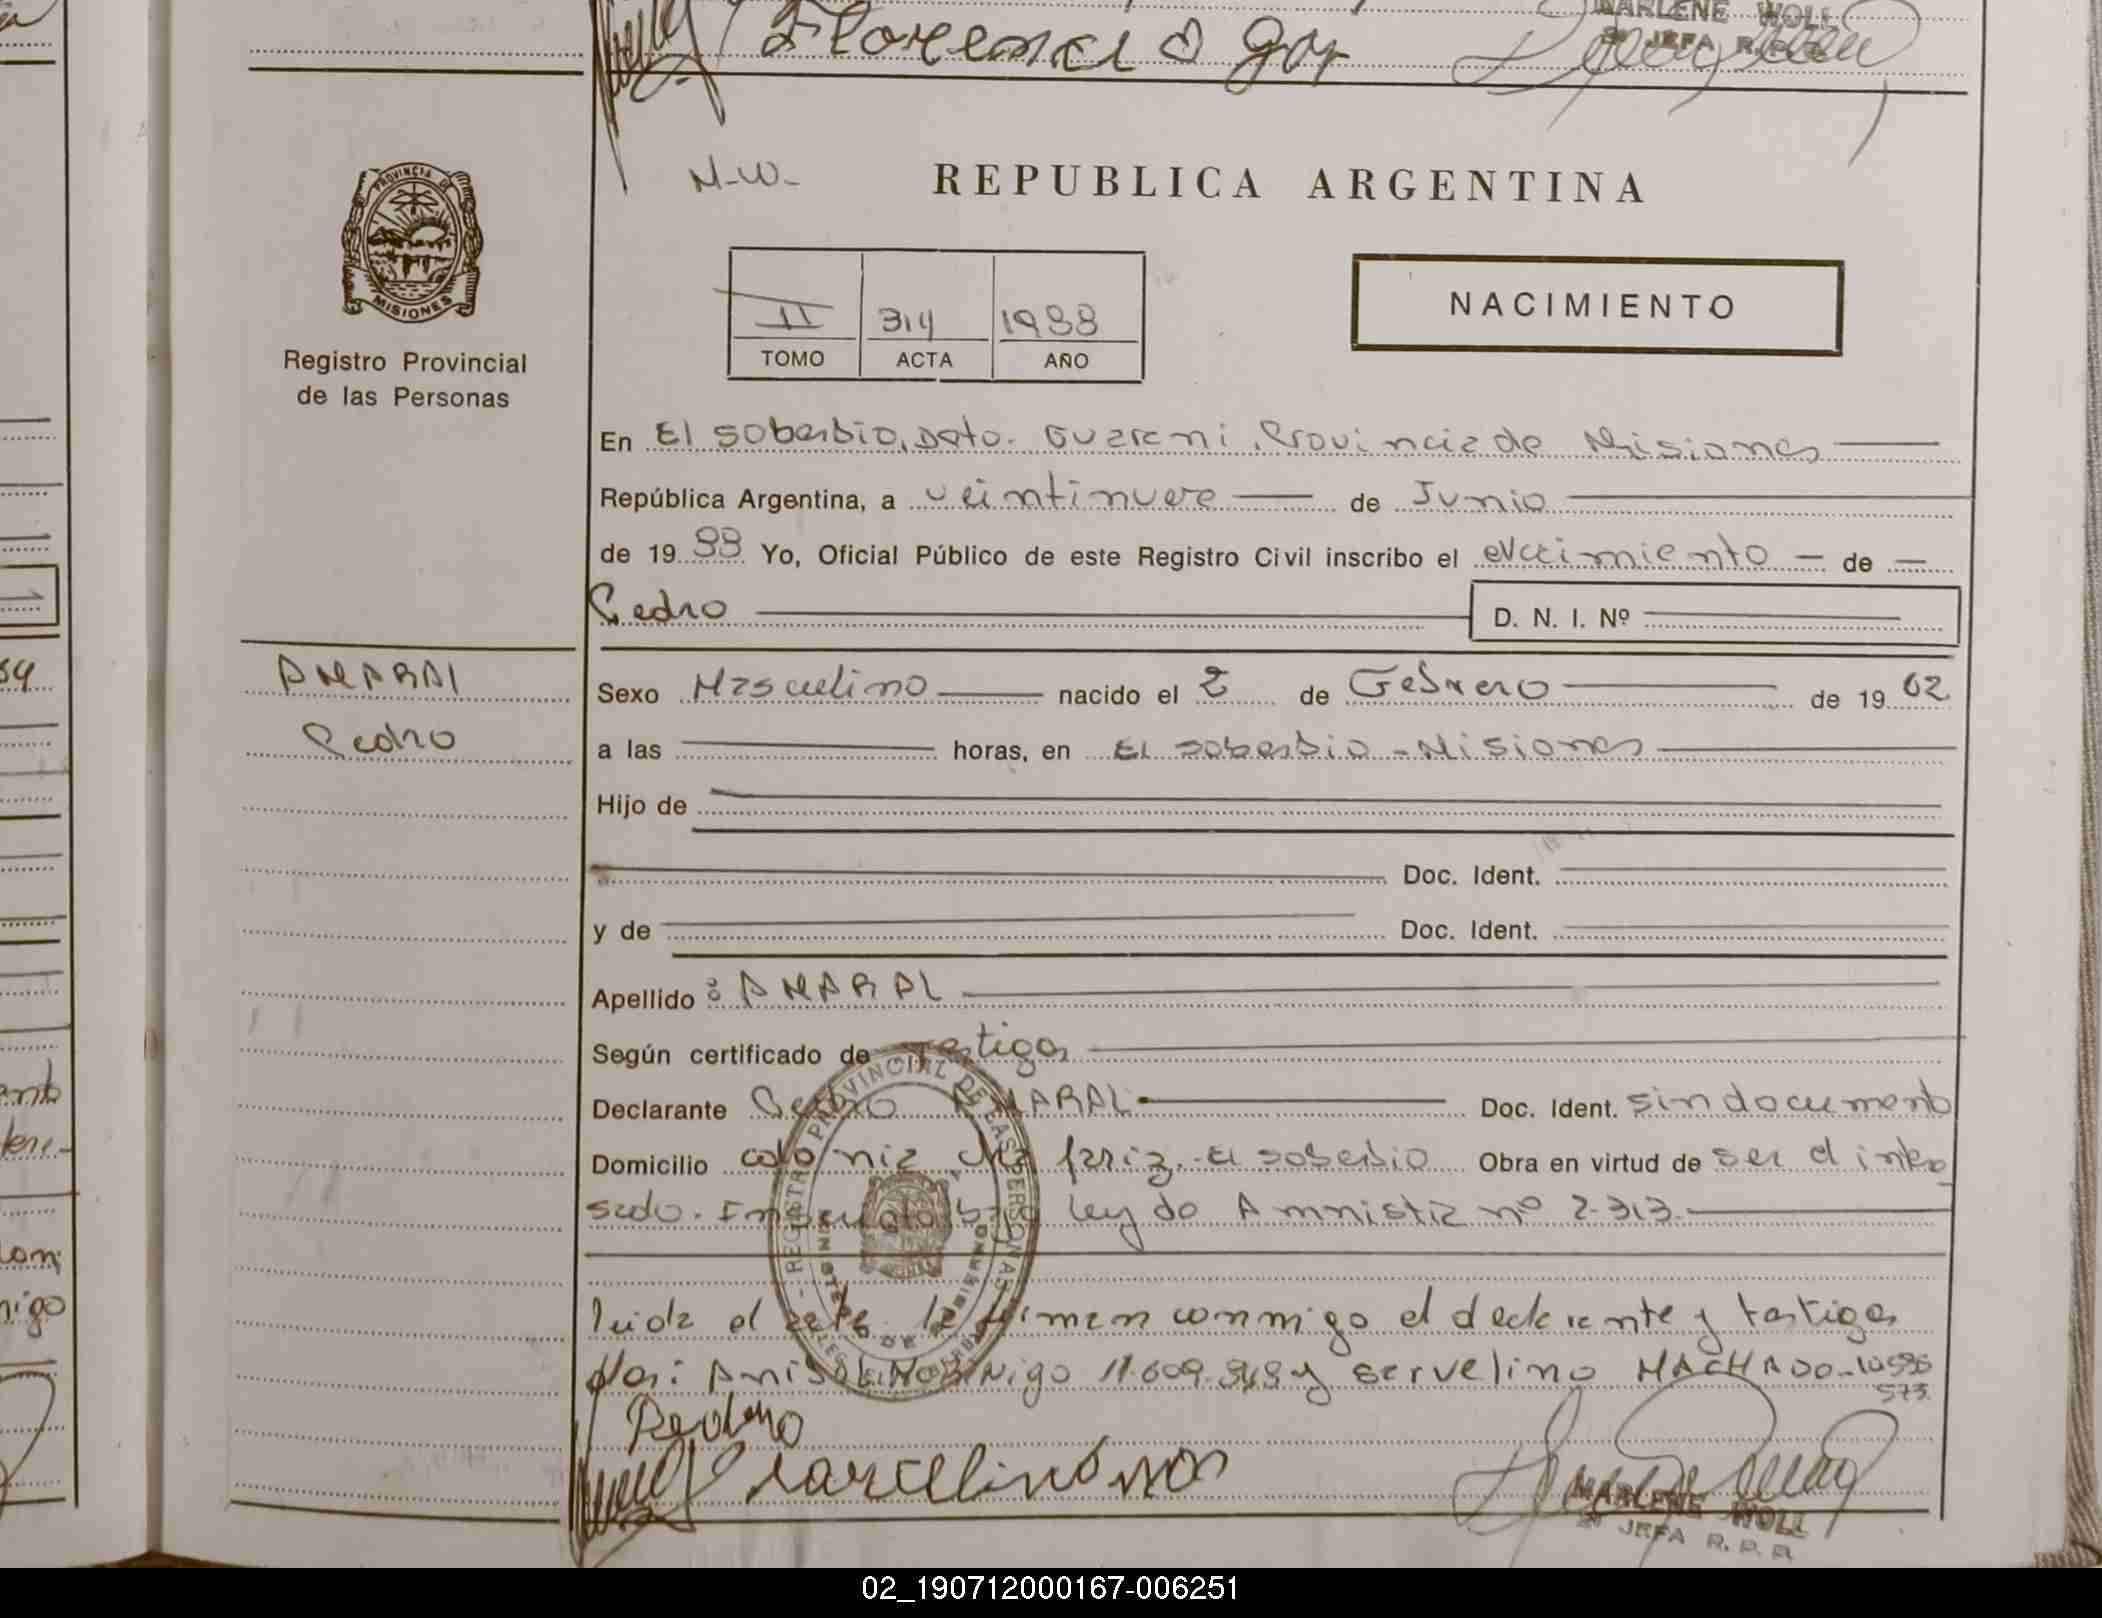 Florencio Goy
MARLENE WOLL
2ª JEFA R.P.P.
M-W-
REPUBLICA ARGENTINA
PROVINCIA DE
MISIONES
Registro Provincial
de las Personas
II 314 1988
TOMO ACTA AÑO
NACIMIENTO
En El Soberbio, Dpto. Guarani, Provincia de Misiones
República Argentina, a veintinueve de Junio
de 1988 Yo, Oficial Público de este Registro Civil inscribo el nacimiento de
Pedro
D. N. I. Nº
AMARAL
Pedro
Sexo Masculino nacido el 2 de Febrero de 1962
a las horas, en El Soberbio - Misiones
Hijo de
Doc. Ident.
y de Doc. Ident.
Apellido : AMARAL
Según certificado de testigos
Declarante Pedro AMARAL Doc. Ident. sin documento
Domicilio colonia Alta El Soberbio Obra en virtud de ser el intere
sado. Inscripto bajo Ley de Amnistia nº 2.313.
leida el acta la firman conmigo el declarante y testigos
11.609.949 y servelino MACHADO - 10.596
573.
Pedro
MARLENE WOLL
2ª JEFA R.P.P.
02_190712000167-006251